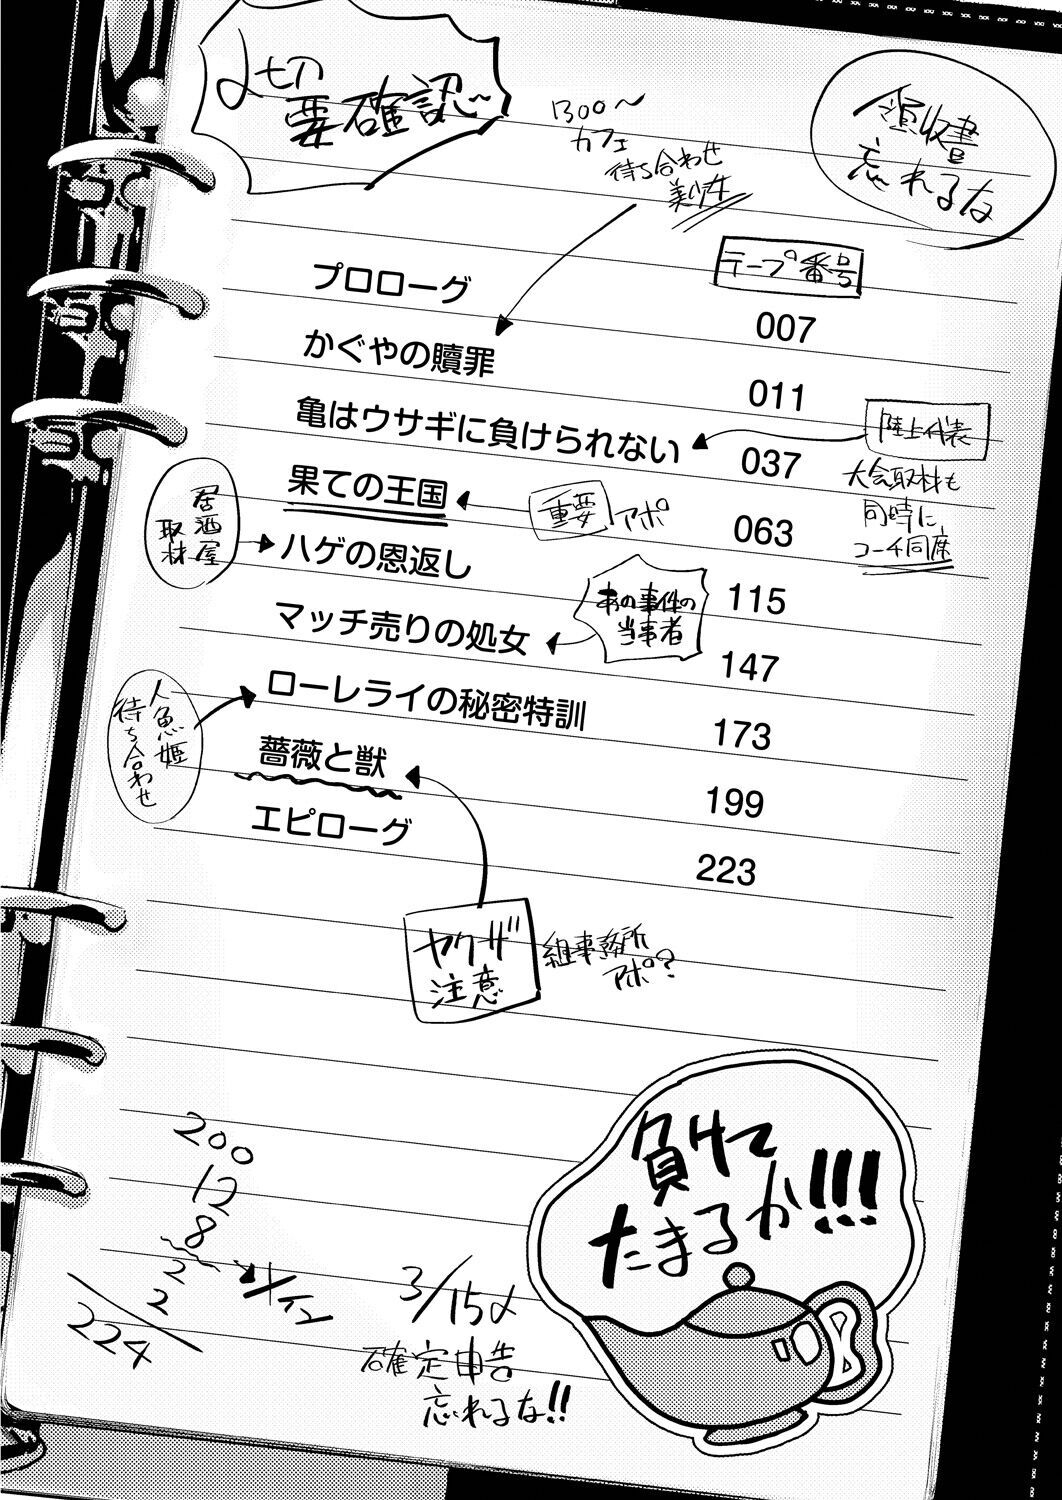 〆切
要確認〜
1300〜
カフェ
待ち合わせ
美少女
領収書
忘れるな
テープ番号
プロローグ 007
かぐやの贖罪 011
亀はウサギに負けられない 037
陸上代表
大会取材も
同時に
コーチ同席
果ての王国 063
重要 アポ
居酒屋
取材
ハゲの恩返し 115
あの事件の
当事者
マッチ売りの処女 147
人魚姫
待ち合わせ
ローレライの秘密特訓 173
薔薇と獣 199
エピローグ 223
ヤクザ
注意
組事務所
アポ?
200
12
8
2
2
224
3/15〆
確定申告
忘れるな!!
負けて
たまるか!!!